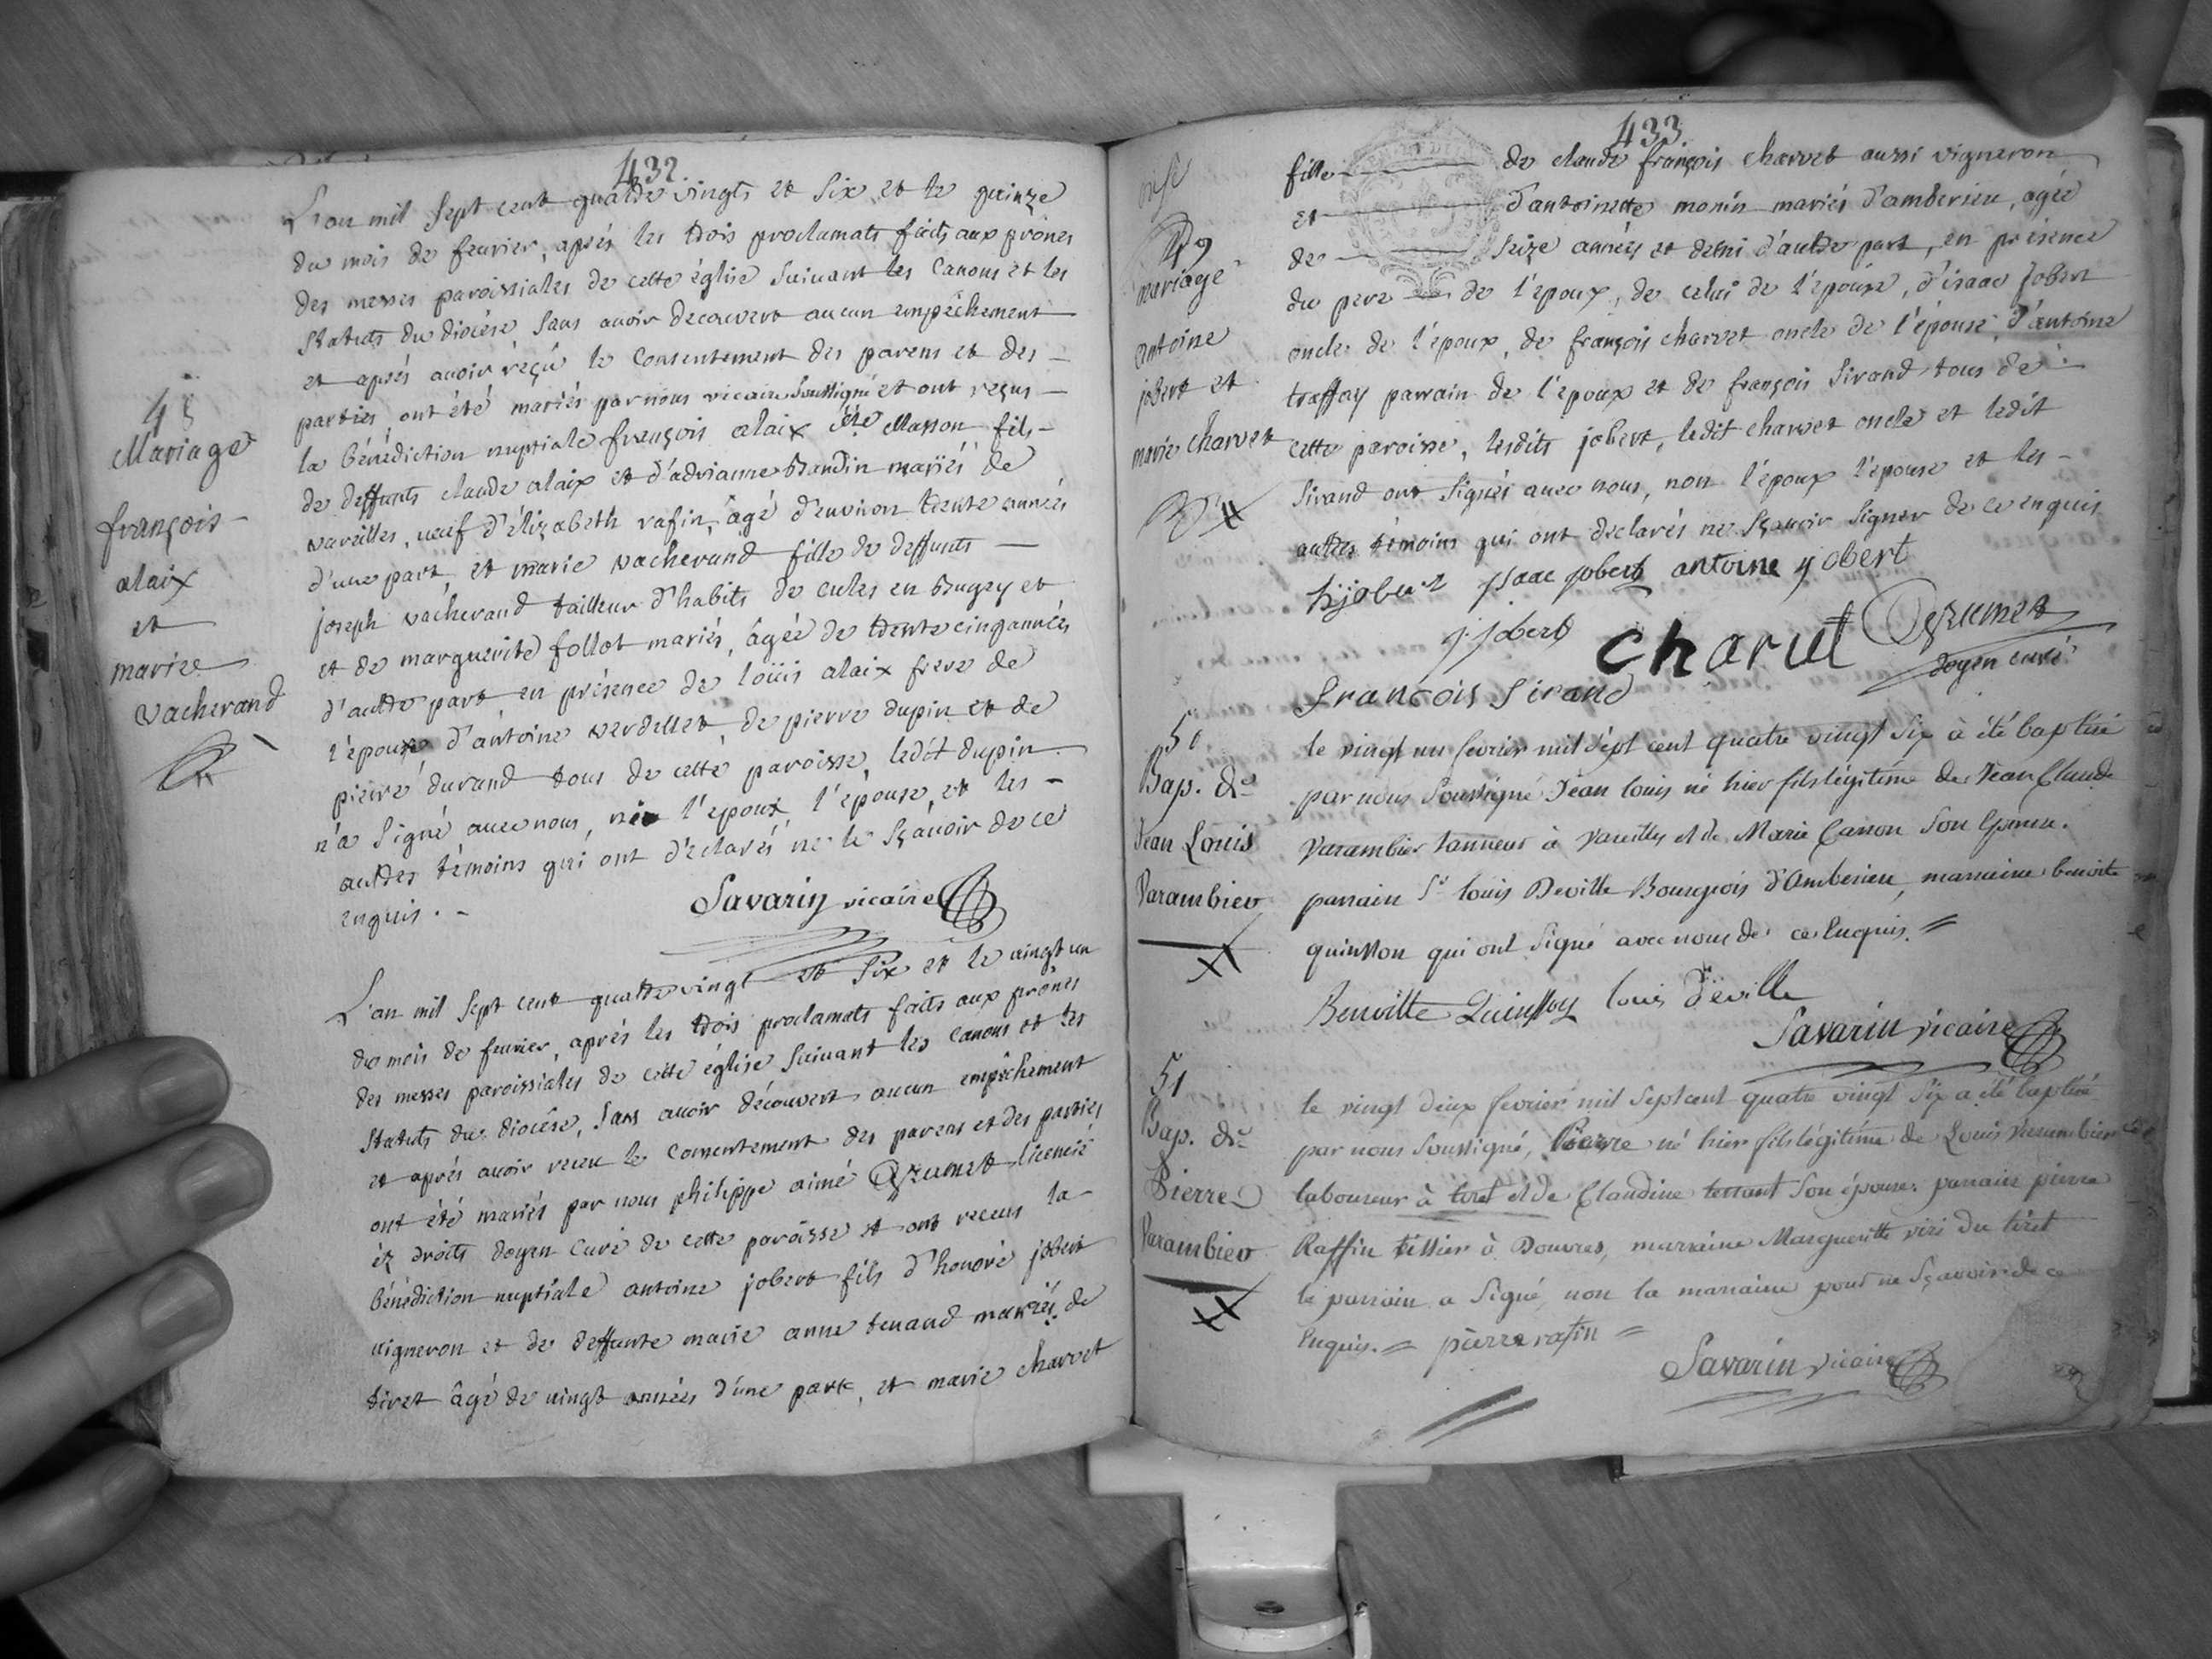 432.
L'an mil sept cent quatre vingts et six et le quinze
du mois de fevrier, après les trois proclamats faits aux prônes
des messes paroissiales de cette église suivant les Canons et les
statuts du diocèse sans avoir decouvert aucun empêchement
et après avoir reçu le Consentement des parens et des —
parties, ont été mariés par nous vicaire soussigné et ont reçus —
la bénédiction nuptiale françois alaix dit Masson fils —
de deffunts claude alaix et d'adrianne Baudin mariés de
vareilles, veuf d'élizabeth rafin, âgé d'environ trente années
d'une part, et marie vacherand fille de deffunts —
joseph vacherand tailleur d'habits de cules en Bugey et
et de marguerite follot mariés, âgée de trente cinq années
d'autre part en présence de loüis alaix frere de
l'epoux, d'antoine verdellet, de pierre dupin et de
pierre durand tous de cette paroisse, ledit dupin
n'a signé avec nous, ni l'epoux l'epouse, et les —
autres témoins qui ont déclarés ne le sçavoir de ce
enquis. —
Savarin vicaire
48
Mariage
françois —
alaix
et
marie
vacherand
L'an mil sept cent quatre vingt et six et le vingt un
du mois de fevrier, après les trois proclamats faits aux prônes
des messes paroissiales de cette église suivant les canons et les
statuts du diocèse, sans avoir découvert aucun empêchement
et après avoir receu le consentement des parens et des parties
ont été mariés par nous philippe aimé Dezumet licencié
ez droits doyen curé de cette paroisse et ont receus la —
bénédiction nuptiale antoine jobert fils d'honoré jobert
vigneron et de deffunte marie anne tenand mariés de
tiret âgé de vingt années d'une part, et marie charvet
433.
fille — de claude françois charvet aussi vigneron
et — d'antoinette monin mariés d'amberieu, agée
de — seize années et demi d'autre part, en présence
du pere — de l'epoux, de celui de l'épouse, d'isaac jobert
oncle de l'epoux, de françois charvet oncle de l'épouse, d'antoine
traffay parrain de l'epoux et de françois sirand tous de
cette paroisse, lesdits jobert, ledit charvet oncle et ledit
sirand ont signés avec nous, non l'époux l'épouse et les —
autres témoins qui ont déclarés ne sçavoir signer de ce enquis
h jobert isaac jobert antoine jobert
j. jobert charvet Dezumet
doyen curé
francois sirand
49
mariage
antoine
jobert et
marie charvet
le vingt un fevrier mil sept cent quatre vingt six à été baptisé
par nous soussigné Jean louis né hier fils légitime de Jean Claude
Varambier tanneur à vareilles et de Marie Canon son Epouse.
parrain Sr louis Deville Bourgeois d'Amberieu, marraine benoite
quinson qui ont signé avec nous de ce Enquis. =
Benoitte Quinson louis déville
Savarin vicaire
50
Bap. de
Jean Louis
Varambier
le vingt deux fevrier mil sept cent quatre vingt six a été baptisé
par nous soussigné, Pierre né hier fils légitime de Louis Varambier
laboureur à tiret et de Claudine tenant son épouse. parrain pierre
Raffin tissier à Douvres, marraine Marguerite viri du tiret
le parrain a signé, non la marraine pour ne sçavoir de ce
Enquis. = pierre rafin =
Savarin vicaire
51
Bap. de
Pierre
Varambier